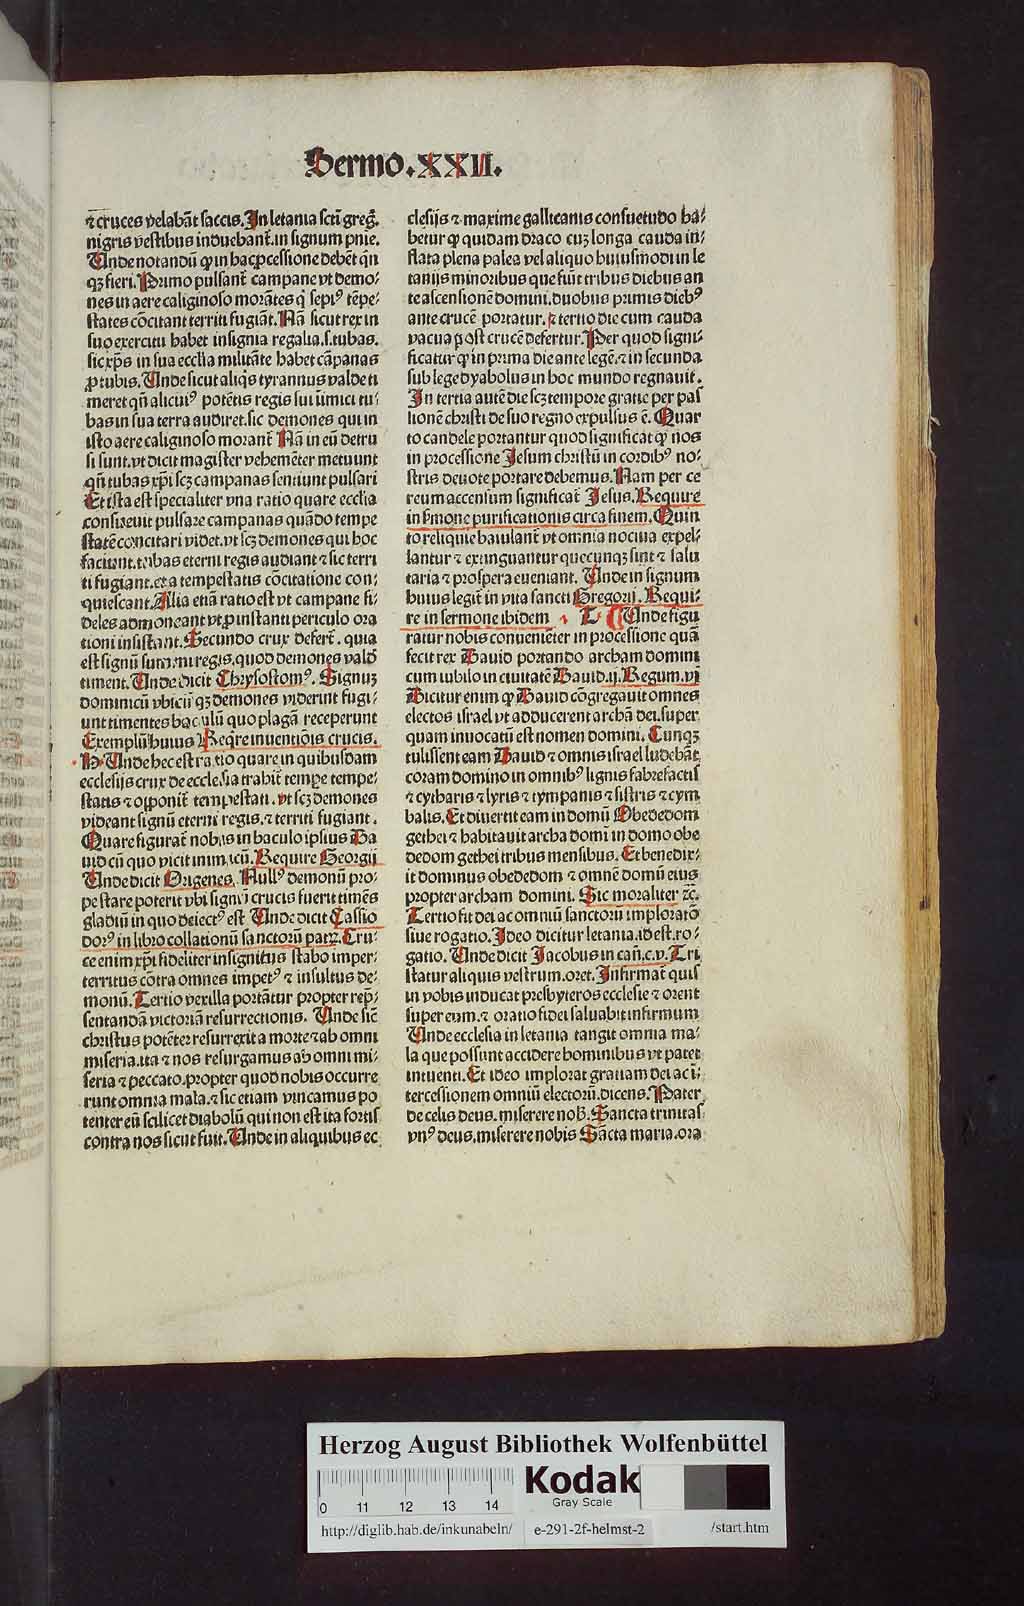 Sermo.XXII.
⁊ cruces velabāt saccis. In letania scti greg̃.
nigris vestibus induebant̃.in signum pn̄ie.
Unde notandū ꝙ in hac ꝓcessione debēt q̄n
qꝫ fieri. Primo pulsant̃ campane vt demo⸗
nes in aere caliginoso morātes q̇ sepiꝰ tēpe⸗
states cōcitant territi fugiāt. Nā sicut rex in
suo exercitu habet insignia regalia.s.tubas.
sic xp̄s in sua ecclīa militāte habet cāpanas
ꝓ tubis. Unde sicut aliq̇s tyrannus valde ti
meret qn̄ alicuiꝰ potētis regis sui inimici tu⸗
bas in sua terra audiret.sic demones qui in
isto aere caliginoso morant̃ Nā in eū detru
si sunt.vt dicit magister vehemēter metuunt
qn̄ tubas xp̄i scꝫ campanas sentiunt pulsari
Et ista est specialiter vna ratio quare ecclīa
consueuit pulsare campanas quādo tempe
statē concitari videt.vt scꝫ demones qui hoc
faciunt.tubas eterni regis audiant ⁊ sic terri
ti fugiant.et a tempestatis cōcitatione con⸗
quiescant. Alia etiā ratio est vt campane fi⸗
deles admoneant vt ꝓ instanti periculo ora
tioni insistant. Secundo crux defert̃. quia
est signū summi regis.quod demones valð
timent. Unde dicit Chrysostomꝰ. Signuꝫ
dominicū vbicūqꝫ demones viderint fugi⸗
unt timentes baculū quo plagā receperunt
Exemplū huius Reqre inuentiōis crucis.
Unde hec est ratio quare in quibusdam
ecclesijs crux de ecclesia trahit̃ tempe tempe⸗
statis ⁊ opponit̃ tempestati. vt scꝫ demones
videant signū eterni regis.⁊ territi fugiant.
Quare figurat̃ nobis in baculo ipsius Da
uid cū quo vicit inimicū. Require Georgij
Unde dicit Origenes. Nullꝰ demonū pro⸗
pe stare poterit vbi signū crucis fuerit timēs
gladiū in quo deiectꝰ est Unde dicit Cassio
dorꝰ in libro collationū sanctorū patꝝ. Cru⸗
ce enim xp̄i fideliter insignitus stabo imper⸗
territus cōtra omnes impetꝰ ⁊ insultus de⸗
monū. Tertio vexilla portātur propter rep̄⸗
sentandā victoriā resurrectionis. Unde sic̄
christus potēter resurrexit a morte ⁊ ab omni
miseria.ita ⁊ nos resurgamus ab omni mi⸗
seria ⁊ peccato.propter quod nobis occurre
runt omnia mala.⁊ sic etiam vincamus po
tenter eū scilicet diabolū qui non est ita fortis
contra nos sicut fuit. Unde in aliquibus ec
clesijs ⁊ maxime gallicanis consuetudo ha⸗
betur ꝙ quidam draco cuꝫ longa cauda in⸗
flata plena palea vel aliquo huiusmodi in le
tanijs minoribus que fiūt tribus diebus an
te ascensionē domini.duobus primis diebꝰ
ante crucē portatur.⁊ tertio die cum cauda
vacua post crucē defertur. Per quod signi⸗
ficatur ꝙ in prima die ante legē.⁊ in secunda
sub lege dyabolus in hoc mundo regnauit.
In tertia autē die scꝫ tempore gratie per pas
sionē christi de suo regno expulsus ē. Quar
to candele portantur quod significat ꝙ nos
in processione Jesum christū in cordibꝰ no⸗
stris deuote portare debemus. Nam per ce
reum accensum significat̃ Jesus. Require
in ẜmone purificationis circa finem. Quin
to reliquie baiulant̃ vt omnia nociua expel⸗
lantur ⁊ extinguantur quecunqꝫ sint ⁊ salu
taria ⁊ prospera eueniant. Unde in signum
huius legit̃ in vita sancti Gregorij. Requi⸗
re in sermone ibidem Unde figu
ratur nobis conueniēter in processione quā
fecit rex Dauid portando archam domini
cum iubilo in ciuitatē Dauid.ij.Regum.vi
Dicitur enim ꝙ Dauid cōgregauit omnes
electos israel vt adducerent archā dei.super
quam inuocatū est nomen domini. Cunqꝫ
tulissent eam Dauid ⁊ omnis israel ludebāt
coram domino in omnibꝰ lignis fabrefactis
⁊ cytharis ⁊ lyris ⁊ tympanis ⁊ sistris ⁊ cym
balis. Et diuertit eam in domū Obededom
gethei ⁊ habitauit archa domi̇ in domo obe
dedom gethei tribus mensibus. Et benedix⸗
it dominus obededom ⁊ omnē domū eius
propter archam domini. Sic moraliter ⁊c̄.
Tertio fit dei ac omniū sanctorū imploratō
siue rogatio. Ideo dicitur letania.id est.ro⸗
gatio. Unde dicit Jacobus in cañ.c.v. Tri
statur aliquis vestrum.oret. Infirmat̃ quis
in vobis inducat presbyteros ecclesie ⁊ orent
super eum.⁊ oratio fidei saluabit infirmum
Unde ecclesia in letania tangit omnia ma⸗
la que possunt accidere hominibus vt patet
intuenti. Et ideo implorat gratiam dei ac i̇⸗
tercessionem omniū electorū.dicens. Pater
de celis deus.miserere noƀ. Sancta trinitas
vnꝰ deus.miserere nobis Sācta maria.ora
Herzog August Bibliothek Wolfenbüttel
0 11 12 13 14
Kodak
Gray Scale
http://diglib.hab.de/inkunabeln/ e-291-2f-helmst-2 /start.htm